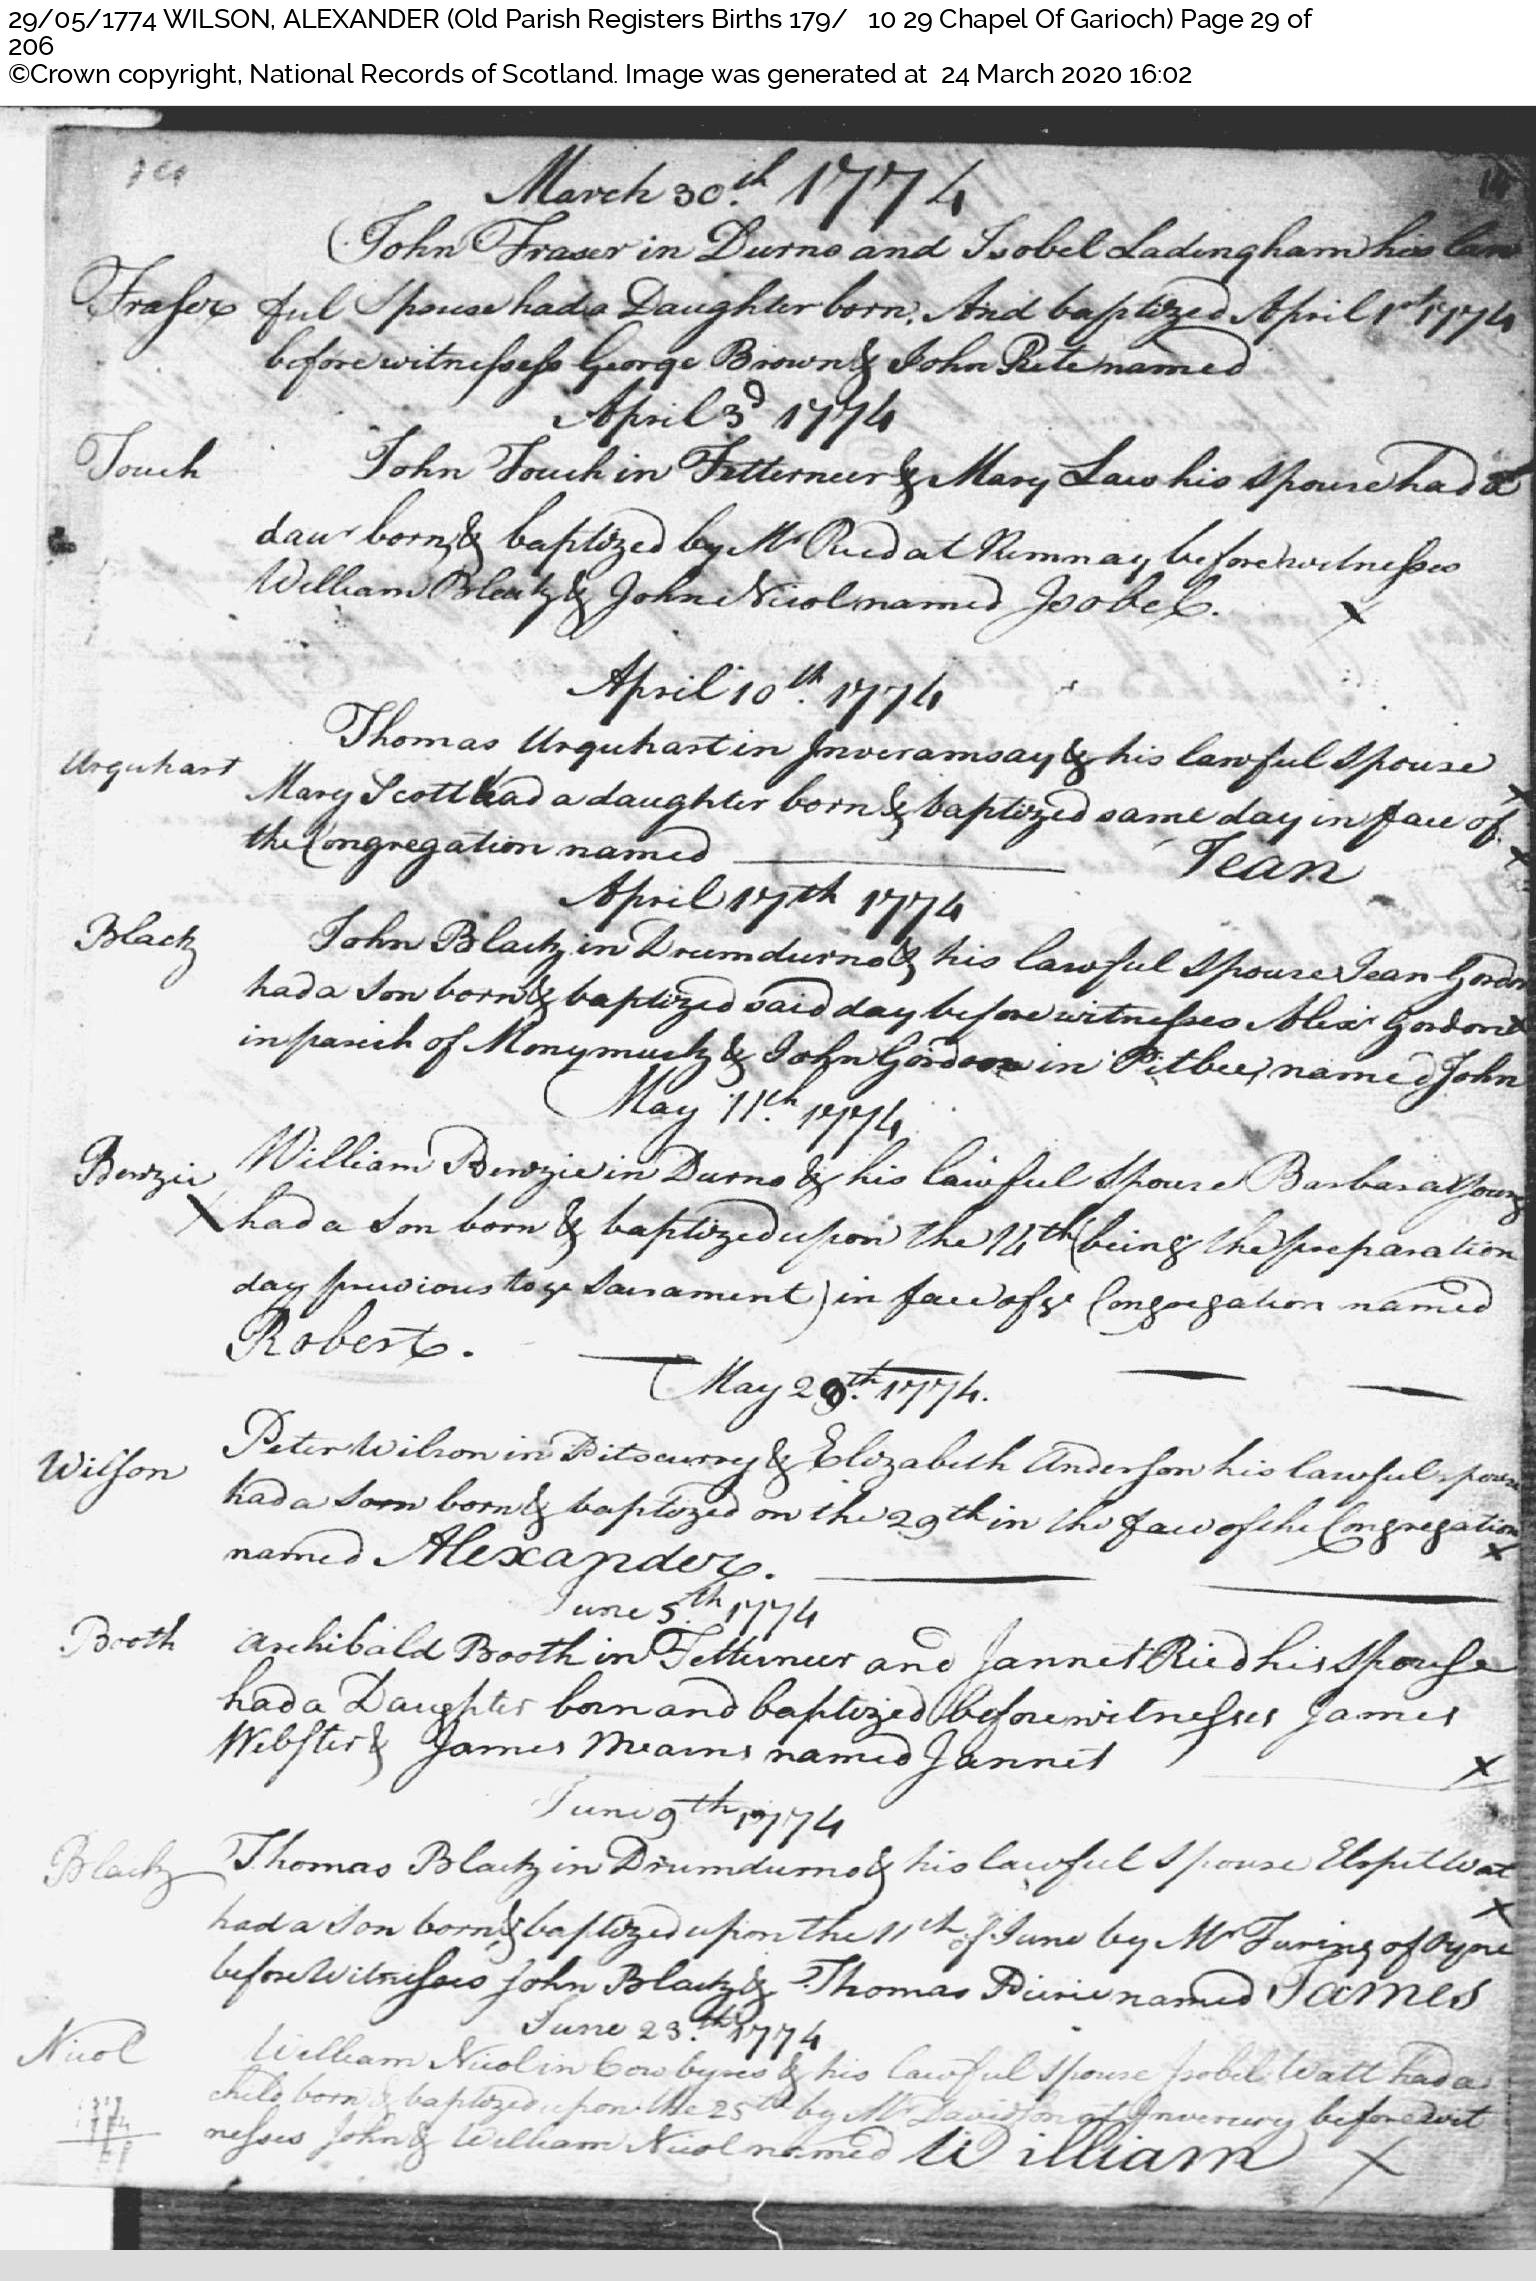 29/05/1774 WILSON, ALEXANDER (Old Parish Registers Births 179/ 10 29 Chapel Of Garioch) Page 29 of
206
©Crown copyright, National Records of Scotland. Image was generated at 24 March 2020 16:02
14
March 30.th 1774
John Fraser in Durno and Isobel Ladingham his law
Fraser ful Spouse had a Daughter born. And baptized April 1st 1774
before witnessess George Brown & John Pete named
April 3d 1774
Touch John Touch in Fetterneer & Mary Law his spouse had a
daur born & baptized by Mr Ried at Kemnay before witnesses
William Black & John Nicol named Isobel.
April 10th. 1774
Thomas Urquhart in Inveramsay & his lawful spouse
Urquhart Mary Scott had a daughter born & baptized same day in face of
the Congregation named Jean
April 17th 1774
Black John Black in Drumdurno & his lawful spouse Jean Gordon
had a Son born & baptized said day before witnesses Alexr Gordon
in parish of Monymusk & John Gordon in Pitbee, named John
May 11th. 1774
Benzie William Benzie in Durno & his lawful Spouse Barbara Young
had a Son born & baptized upon the 14th (being the preparation
day previous to ye Sacrament) in face of ye Congregation named
Robert.
May 29th. 1774.
Wilson Peter Wilson in Pitscurry & Elizabeth Anderson his lawful spouse
had a Son born & baptized on the 29th in the face of the Congregation
named Alexander.
June 5th. 1774
Booth Archibald Booth in Fetterneer and Jannet Ried his Spouse
had a Daughter born and baptized before witnesses James
Webster & James Mearns named Jannet
June 9th 1774
Black Thomas Black in Drumdurno & his lawful Spouse Elspet Wat
had a Son born & baptized upon the 11th of June by Mr Turing of Oyne
before Witnesses John Black & Thomas Pirie named James
June 23.th 1774
Nicol William Nicol in Cowbyres & his lawful spouse Isobel Watt had a
child born & baptized upon the 25th by Mr Davidson at Inverury before wit
nesses John & William Nicol named William
1774